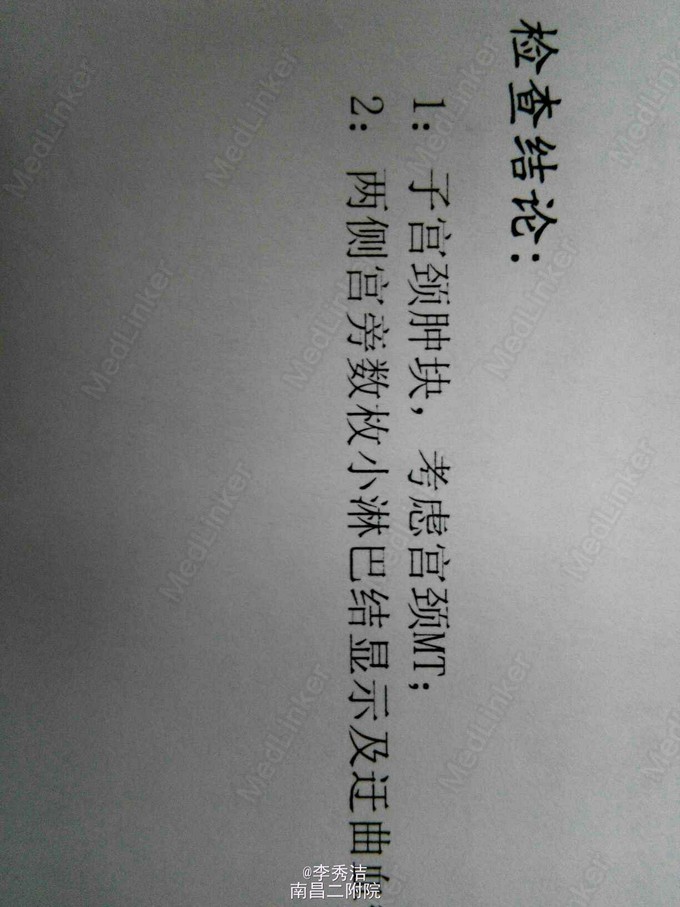 检查结论:
1: 子宫颈肿块, 考虑宫颈MT;
2: 两侧宫旁数枚小淋巴结显示及迂曲
@李秀洁
南昌二附院
MedLinker
MedLinker
MedLinker
MedLinker
MedLinker
MedLinker
MedLinker
MedLinker
MedLinker
MedLinker